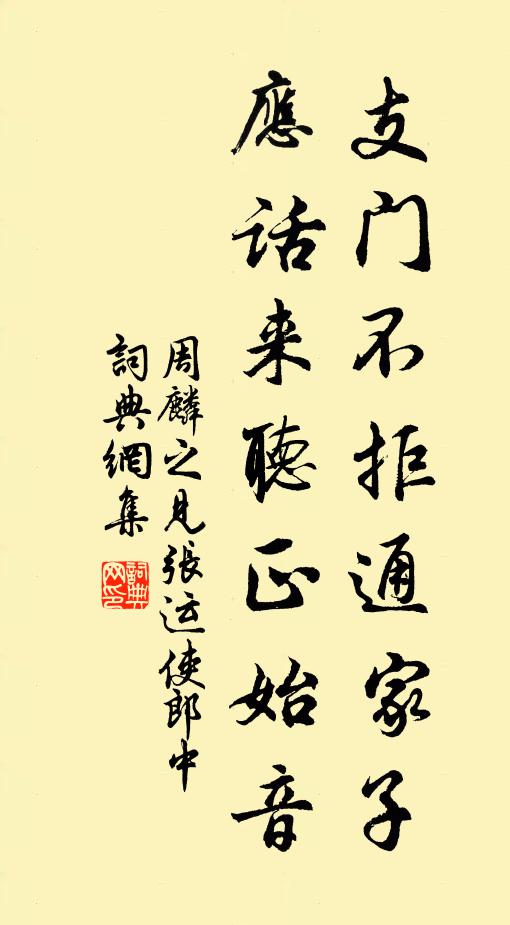 支门不拒通家子
應话来聽正始音
周麟之見張运使郎中
詞典網集
詞典网印